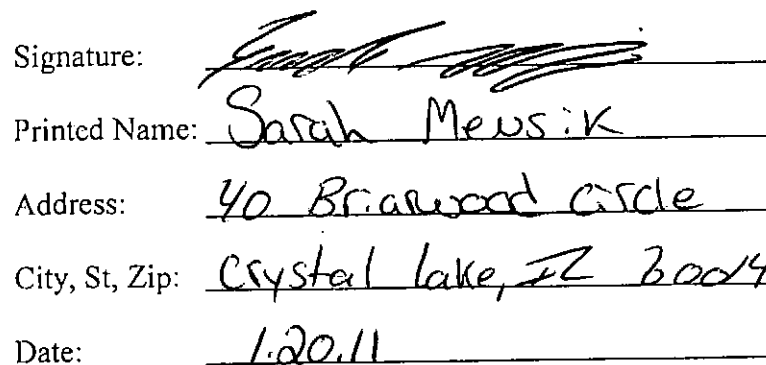 Signature:
Printed Name: Sarah Mewsik
Address: 40 Briarwood circle
City, St, Zip: Crystal lake, IL 60014
Date: 1.20.11